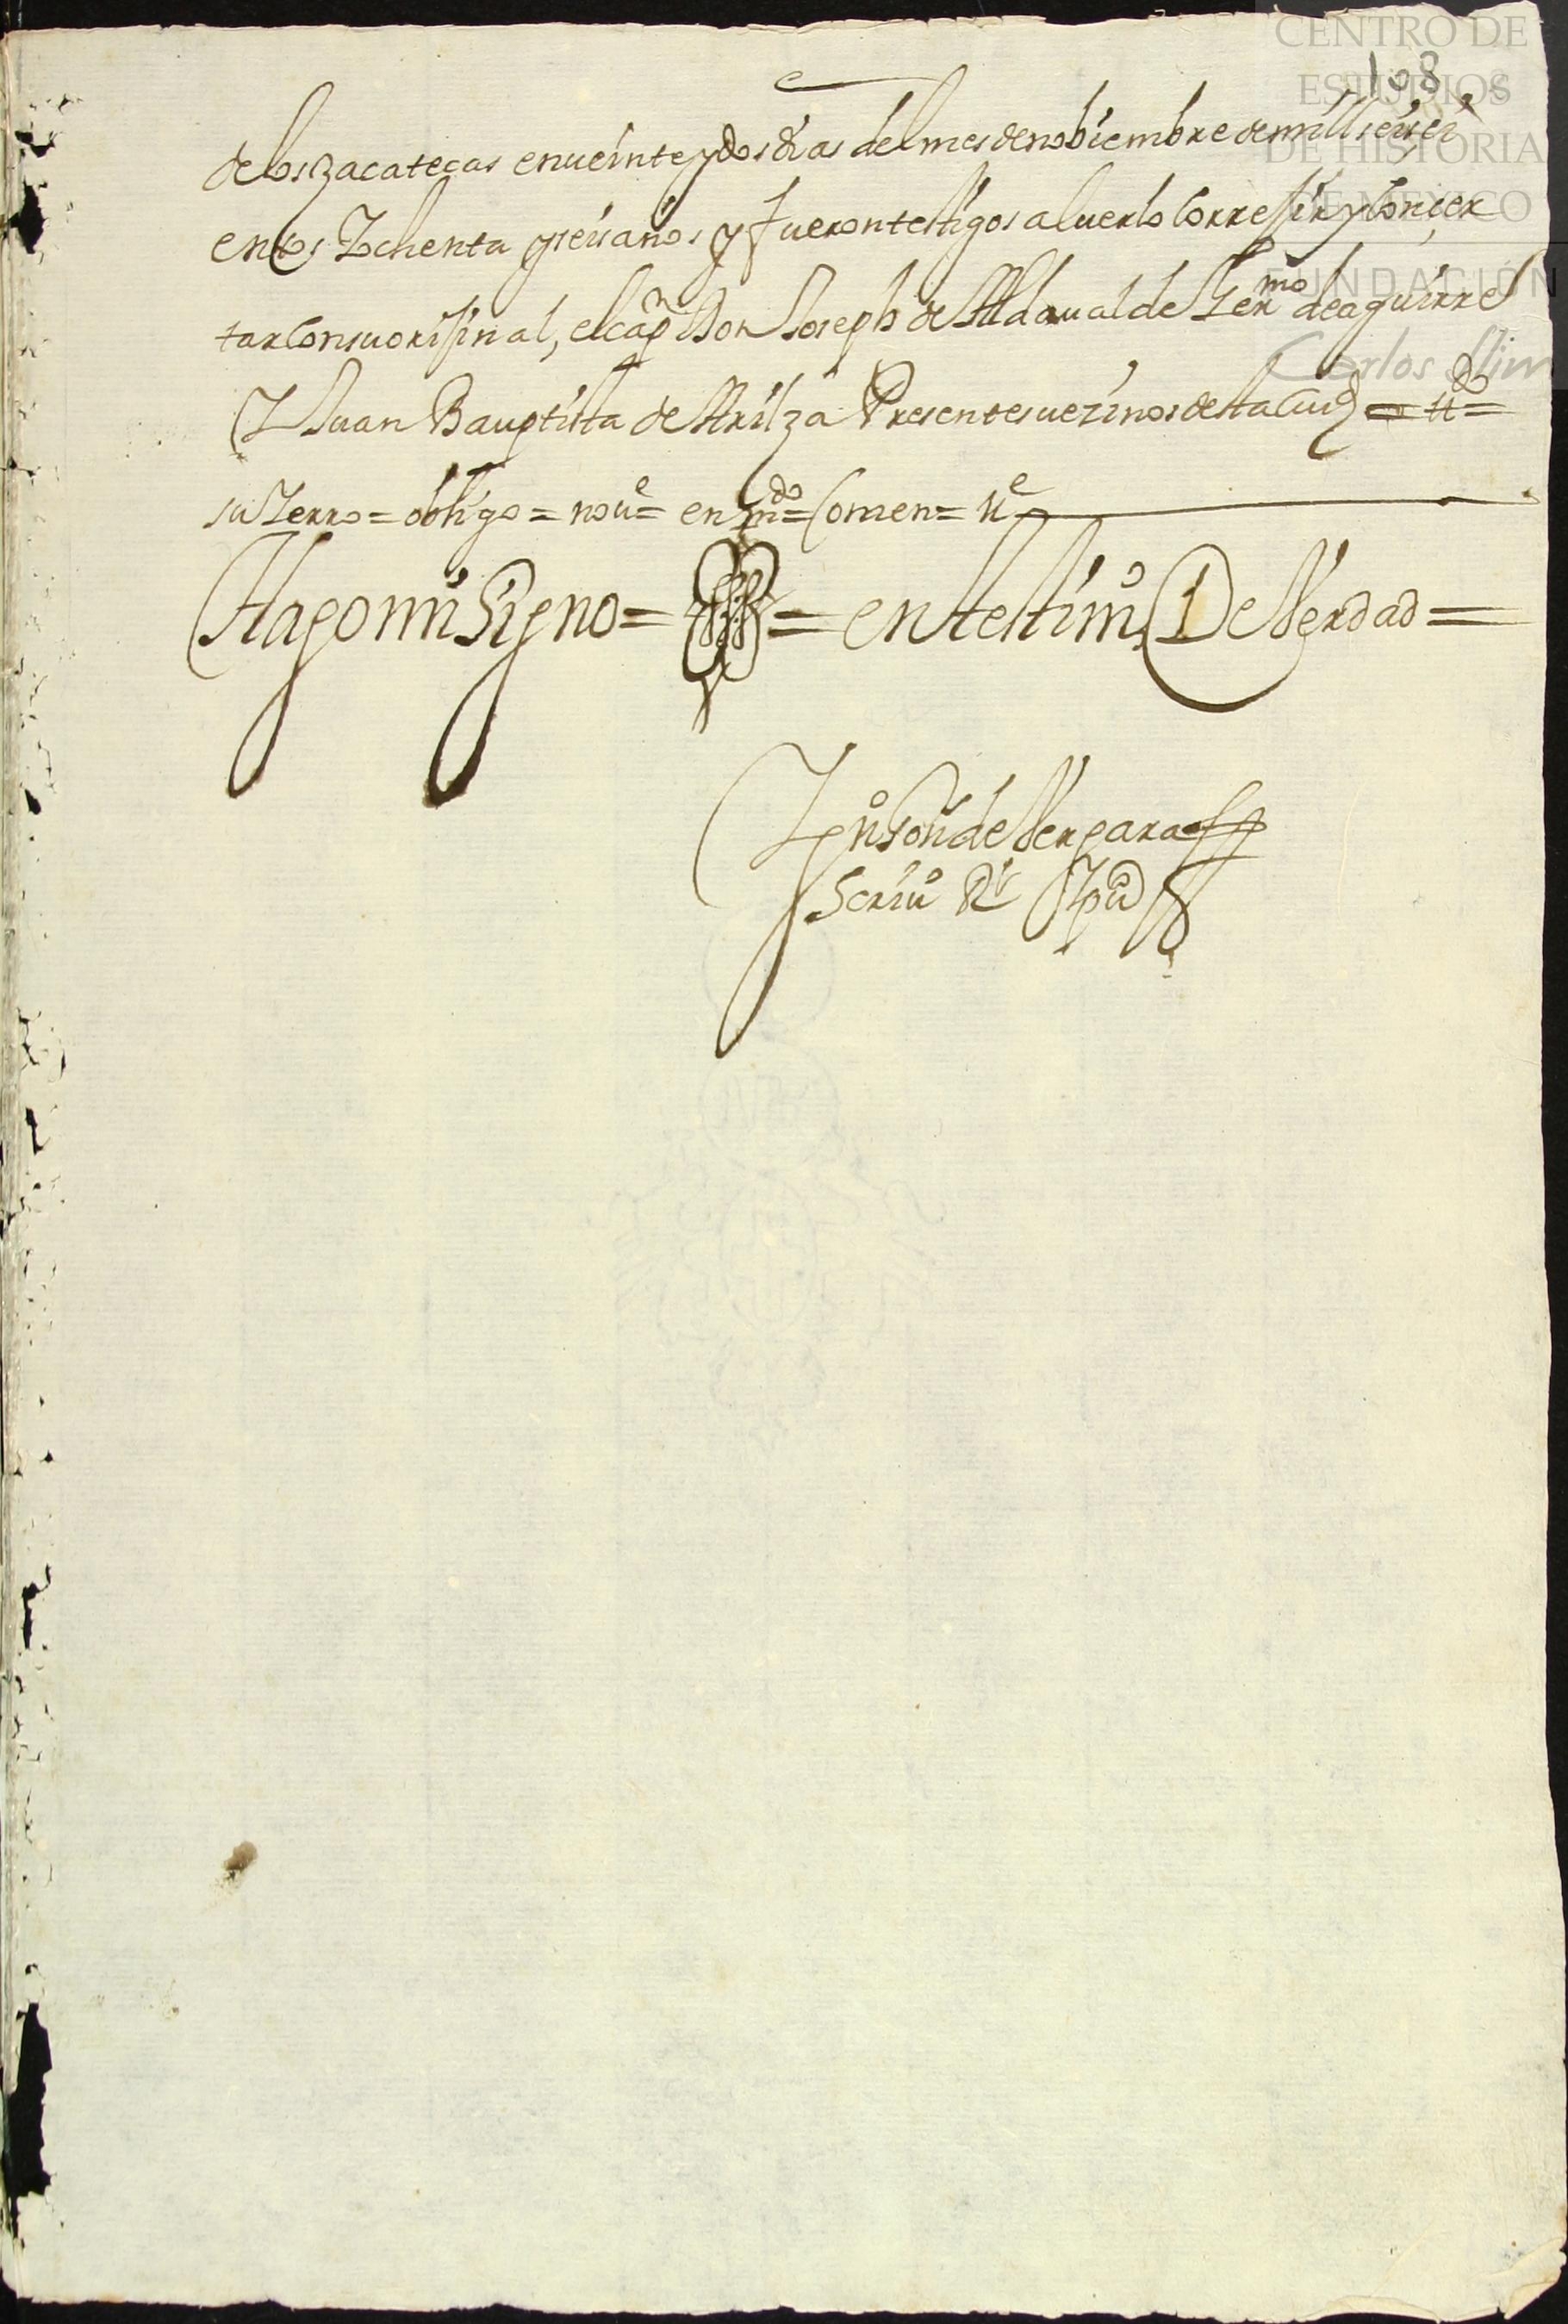 CENTRO DE
ESTUDIOS
DE HISTORIA
DE MEXICO
FUNDACIÓN
Carlos Slim
108
de los zacatecas en veinte y dos dias del mes de nobiembre de mill seisci
entos Y ochenta y seis años y fueron testigos al verlo Correjir y Conçer
tar Con su orijinal, el capn Don Joseph de Aldaualde Germo de aguirre
Y Juan Bauptista de Arilza Presentes vezinos desta Ciud = ttdo =
su Yerro = obligo = no ue = enmdo = Comen = ue
Hago mi Signo = = en testimo De Verdad =
de Vergara
Scriuo Rl Ppco